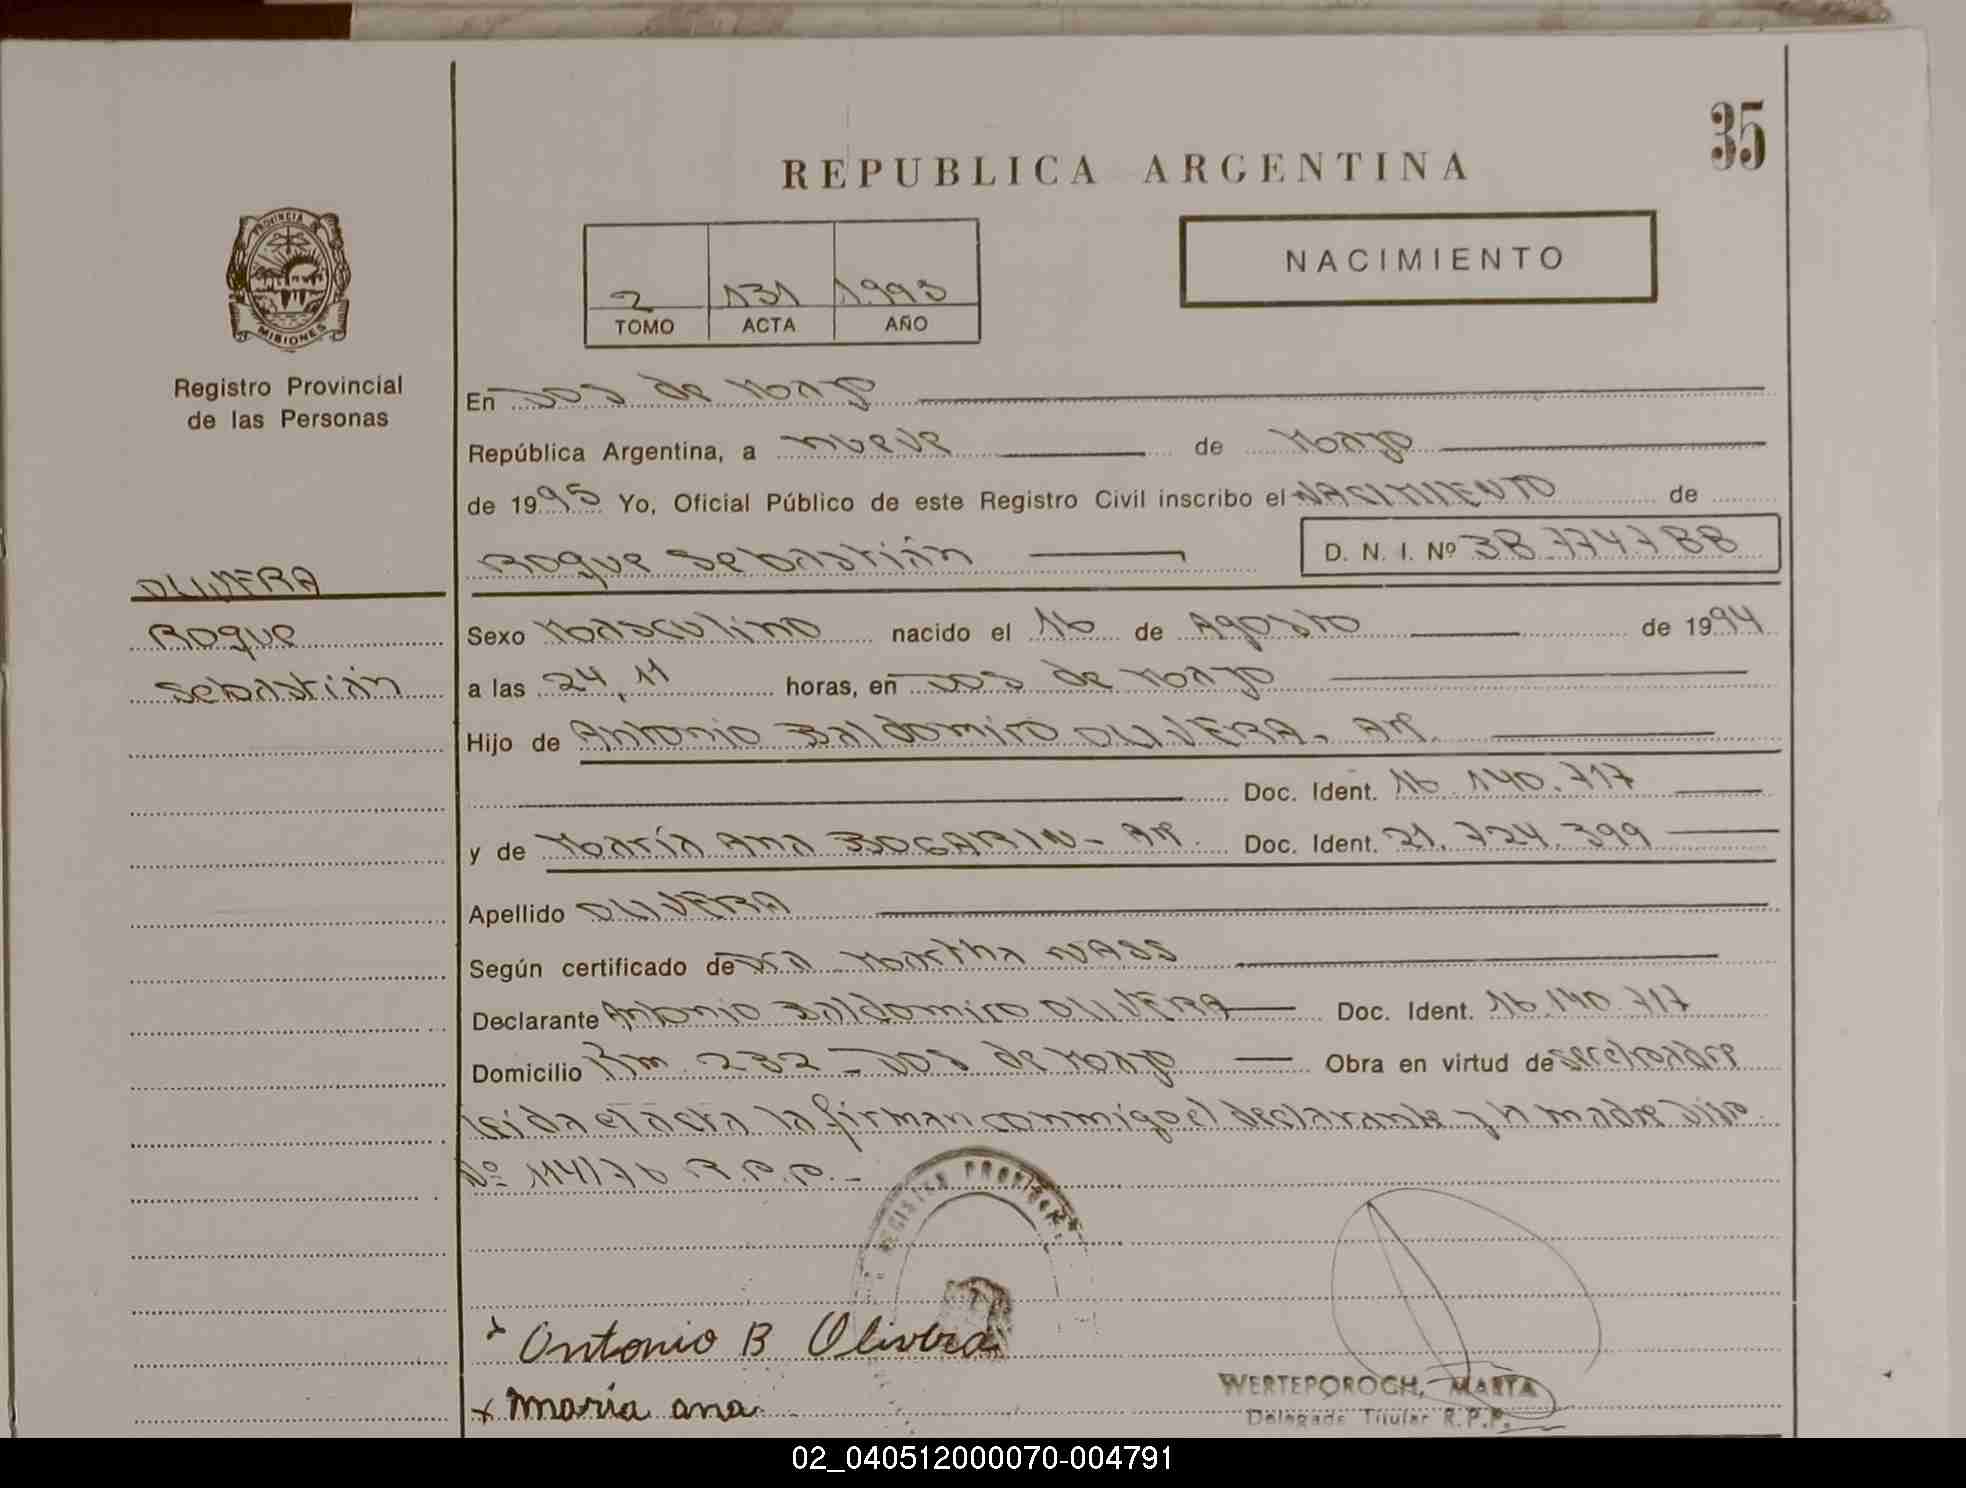 35
REPUBLICA ARGENTINA
PROVINCIA
MISIONES
Registro Provincial
de las Personas
NACIMIENTO
2 131 1.995
TOMO ACTA AÑO
En Dos de Mayo
República Argentina, a nueve de Marzo
de 1995 Yo, Oficial Público de este Registro Civil inscribo el NACIMIENTO de
Roque Sebastián D. N. I. Nº 38.774788
OLIVERA
Roque
Sebastián
Sexo Masculino nacido el 16 de Agosto de 1994
a las 24,11 horas, en Dos de Mayo
Hijo de Antonio Baldomiro OLIVERA - Ar.
Doc. Ident. 16.140.717
y de María Ana BOGARIN - Ar. Doc. Ident. 21.724.399
Apellido OLIVERA
Según certificado de Dra Martha NASS
Declarante Antonio Baldomiro OLIVERA Doc. Ident. 16.140.717
Domicilio Km 232 - Dos de Mayo Obra en virtud de ser el padre
leida el acta la firman conmigo el declarante y la madre Disp.
Nº 114/76 R.P.P. -
REGISTRO PROVINCIAL
x Antonio B Olivera
x maria ana
WERTEPOROGH, MARTA
Delegada Titular R.P.P.
02_040512000070-004791